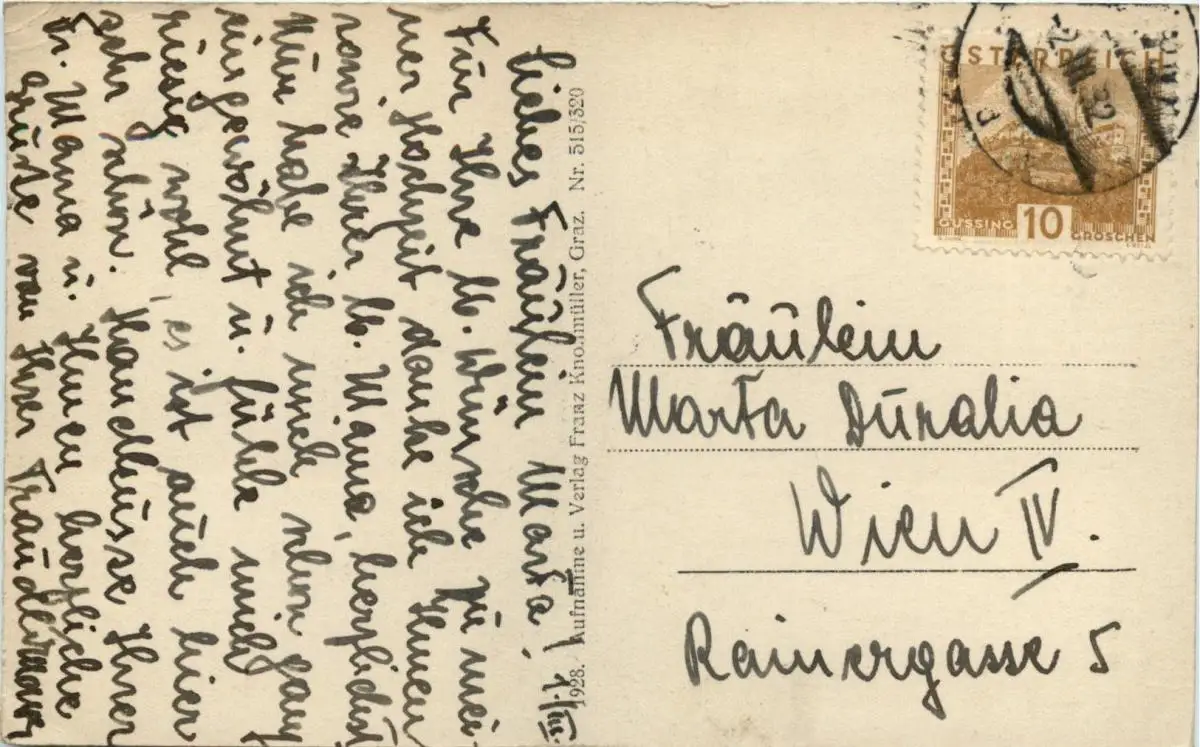 Liebes Fräulein Marta!
1./III.
Für Ihre lb. Wünsche zu mei-
ner Hochzeit danke ich Ihnen
sowie Ihrer lb. Mama, herzlichst
Nun habe ich mich schon ganz
eingewöhnt u. fühle mich
riesig wohl, es ist auch hier
sehr schön. Handküsse Ihrer
Fr. Mama u. Ihnen herzliche
Grüße von Ihrer
1928. Aufnahme u. Verlag Franz Knollmüller, Graz. Nr. 515/320
ÖSTERREICH
GÜSSING 10 GROSCHEN
VIII 32
Fräulein
Marta Duralia
Wien IV.
Rainergasse 5